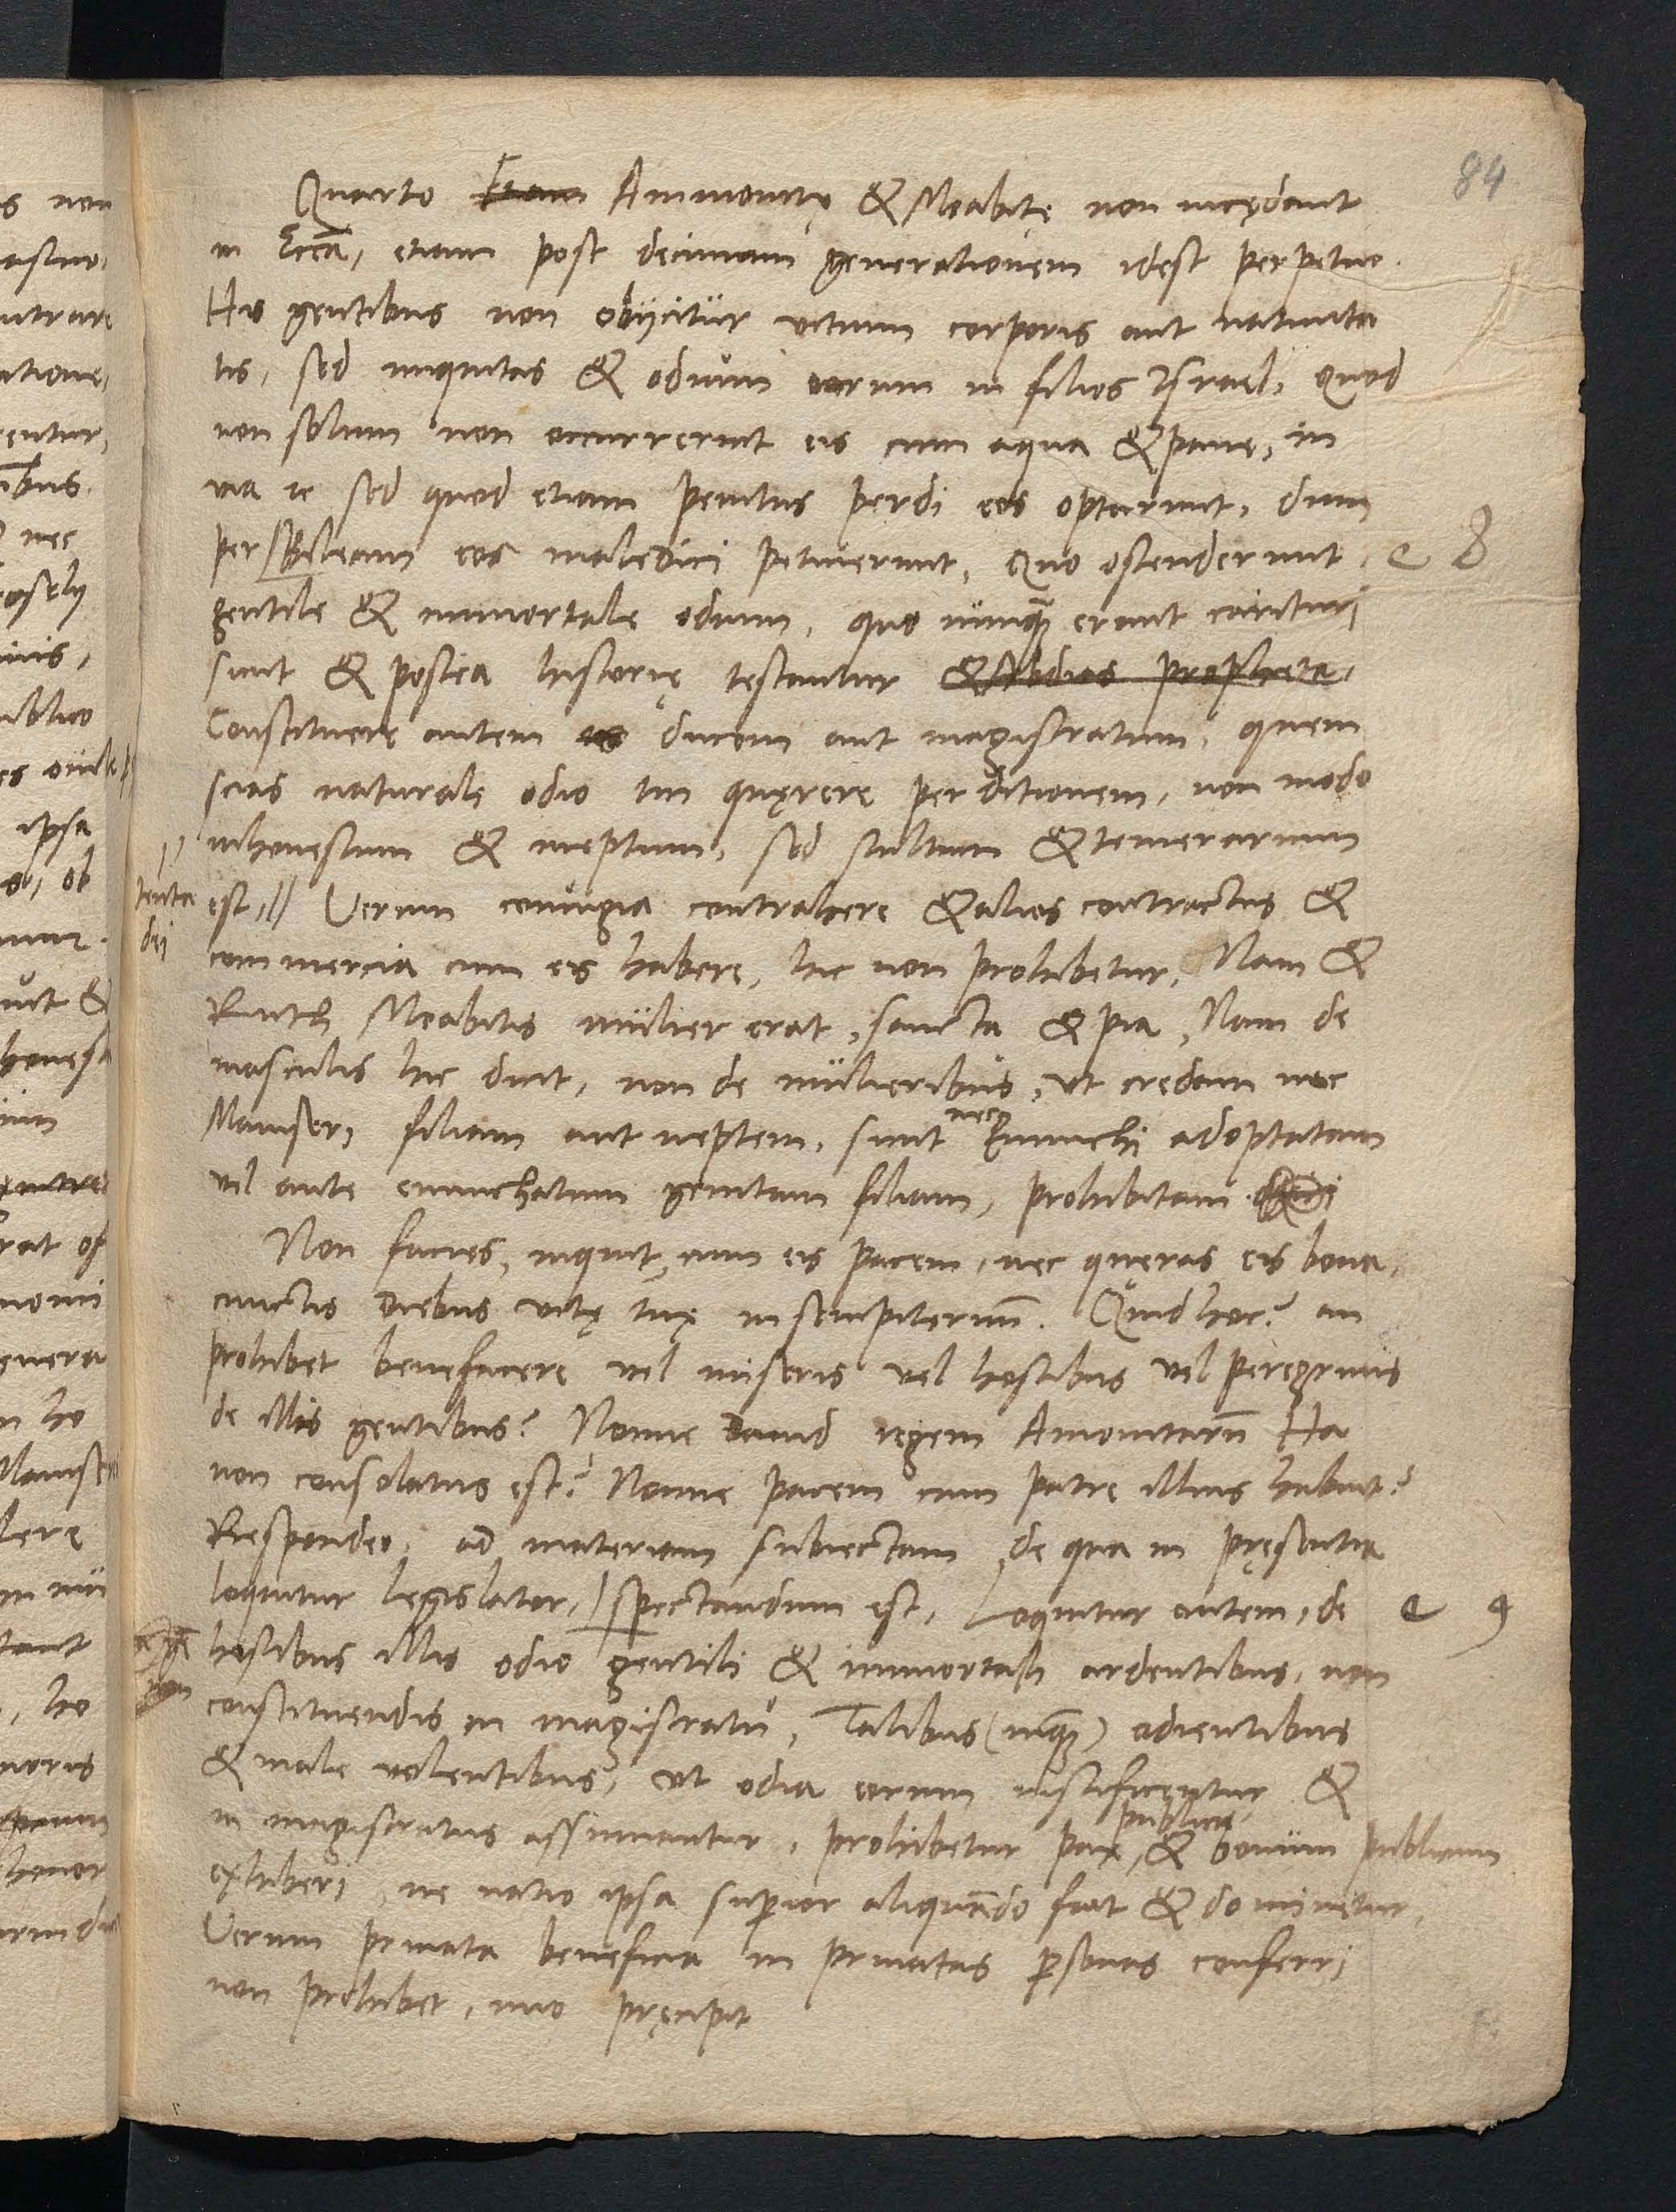 84
Quarto Etiam Ammonitę & Moabitę non incędant
in Eccā, etiam post decimam generationem idest perpetuo.
His gentibus non obijcitur vitium corporis aut natiuita
tis, sed iniquitas & odium eorum in filios Israel, Quod
non solum non occurrerunt eis cum aqua & pane, in
via sed quod etiam penitus perdi eos optarunt, dum
per Bileam eos maledici petiuerunt, Quo ostenderunt
gentile & immortale odium, quo nunquam erant carituri
sicut & postea historię testantur & Abdias propheta.
Constituere autem ducem aut magistratum, quem
scias naturale odio tui quęrere perditionem, non modo
inhonestum & ineptum, sed stultum & temerarium
tenta
dei
est, // Verum coniugia contrahere & alios contractus &
commercia cum eis habere, hic non prohibetur, Nam &
Ruth Moabitis mulier erat, sancta & pia, Nam de
masculis hic dicit, non de mulieribus, ut credam nec
Mamseri filiam aut neptem, sicut nec Eunuchi adoptatam
vel ante eunuchatum genitam filiam, prohibitam
Non facies, inquit, cum eis pacem, nec quęras eis bona,
cunctis diebus vitę tuę in sempiternū. Quid hoc? an
prohibet benefacere vel miseris vel hostibus vel peregrinis
de illis gentibus? Nonne Dauid regem Amonitarū Ha
non consolatus est? Nonne pacem cum patre illius habuit?
Respondeo, ad materiam subiectam, de qua in pręsentia
loquitur legislator, spectandum est, Loquitur autem, de
hostibus illis odio gentili & immortali ardentibus, non
constituendis in magistratu, Talibus (inquam) odientibus
& male volentibus, ut odia eorum iustificentur &
in magistratus assumantur, prohibetur pax publica, & bonum publicum
exhiberi, ne natio ipsa superior aliquando fiat & dominetur,
Verum priuata beneficia in priuatas personas conferri
non prohibet, imo pręcipit